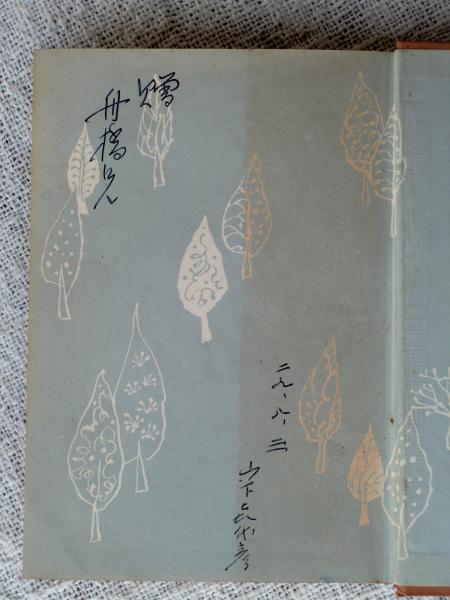 贈
舟橋兄
二九、八、三
山下